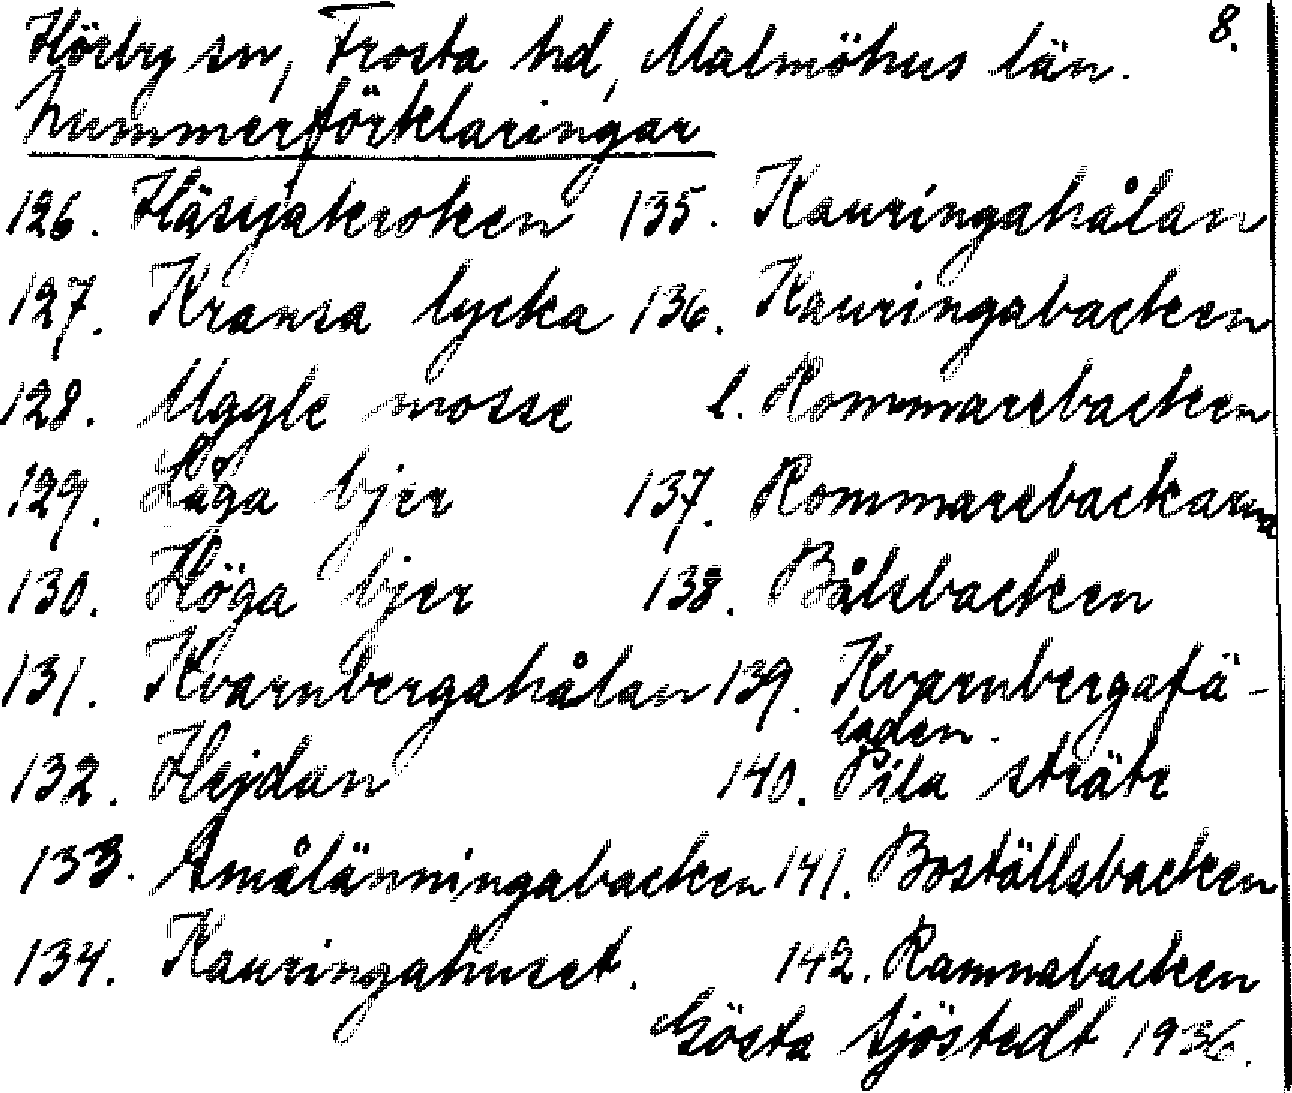 8.
Hörby sn, Frosta hd, Malmöhus län.
Nummerförklaringar
126. Häsrjakroken 135. Kauringahålan
127. Kransa lycka 136. Kauringabacken
128. Maggle mosse l. Rommarebacken
129. Låga bjer 137. Rommarebackarna
130. Höga bjer 138. Bålsbacken
131. Kvarnbergahålan 139. Kvarnbergafä-
laden.
132. Hejdan 140. Pila sträte
133. Smålänningabacken 141. Boställsbacken
134. Kauringahuset. 142. Ramnabacken
Gösta Sjöstedt 1936.